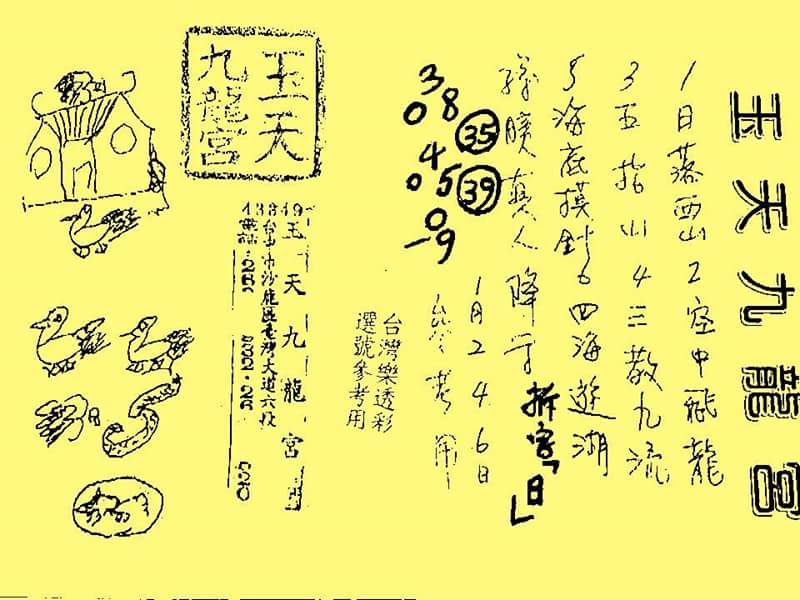 玉天九龍宮
1日落西山2空中飛龍
3五指山4三教九流
5海底摸針6四海遊湖
孫臏真人降字
拆字「日」
1月2 4 6日
38
0
35
45
0
39
0
-9
參考用
台灣樂透彩
選號參考用
玉天
九龍宮
43349
玉天九龍宮
台中市沙鹿區臺灣大道六段